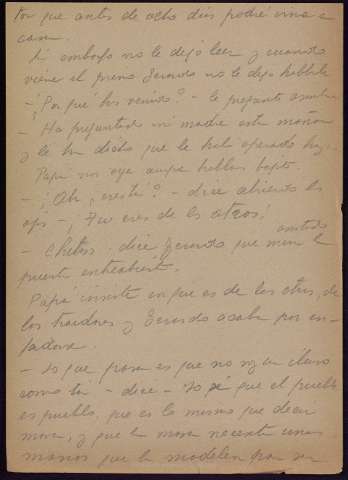 ton que antes de ocho días podré irme a
casa.
Sin embargo no le dejó leer y cuando
viene el primo Gerardo no le dejo hablarle
— ¿Por qué has venido? — le pregunto asustada
— Ha preguntado mi madre esta mañana
y le han dicho que le había operado hoy.
Papá nos oye aunque hablamos bajito.
— ¡Ah, eres tú? — dice abriendo los
ojos — ¡Tú eres de los otros!
— Chitss — dice Gerardo que mira asustado la
puerta entreabierta.
Papá insiste en que es de los otros, de
los traidores y Gerardo acaba por en-
fadarse.
— Lo que pasa es que no soy un iluso
como tú — dice — Yo sé que el pueblo
es pueblo, que es lo mismo que decir
masa, y que la masa necesita unas
manos que la modelen para ser